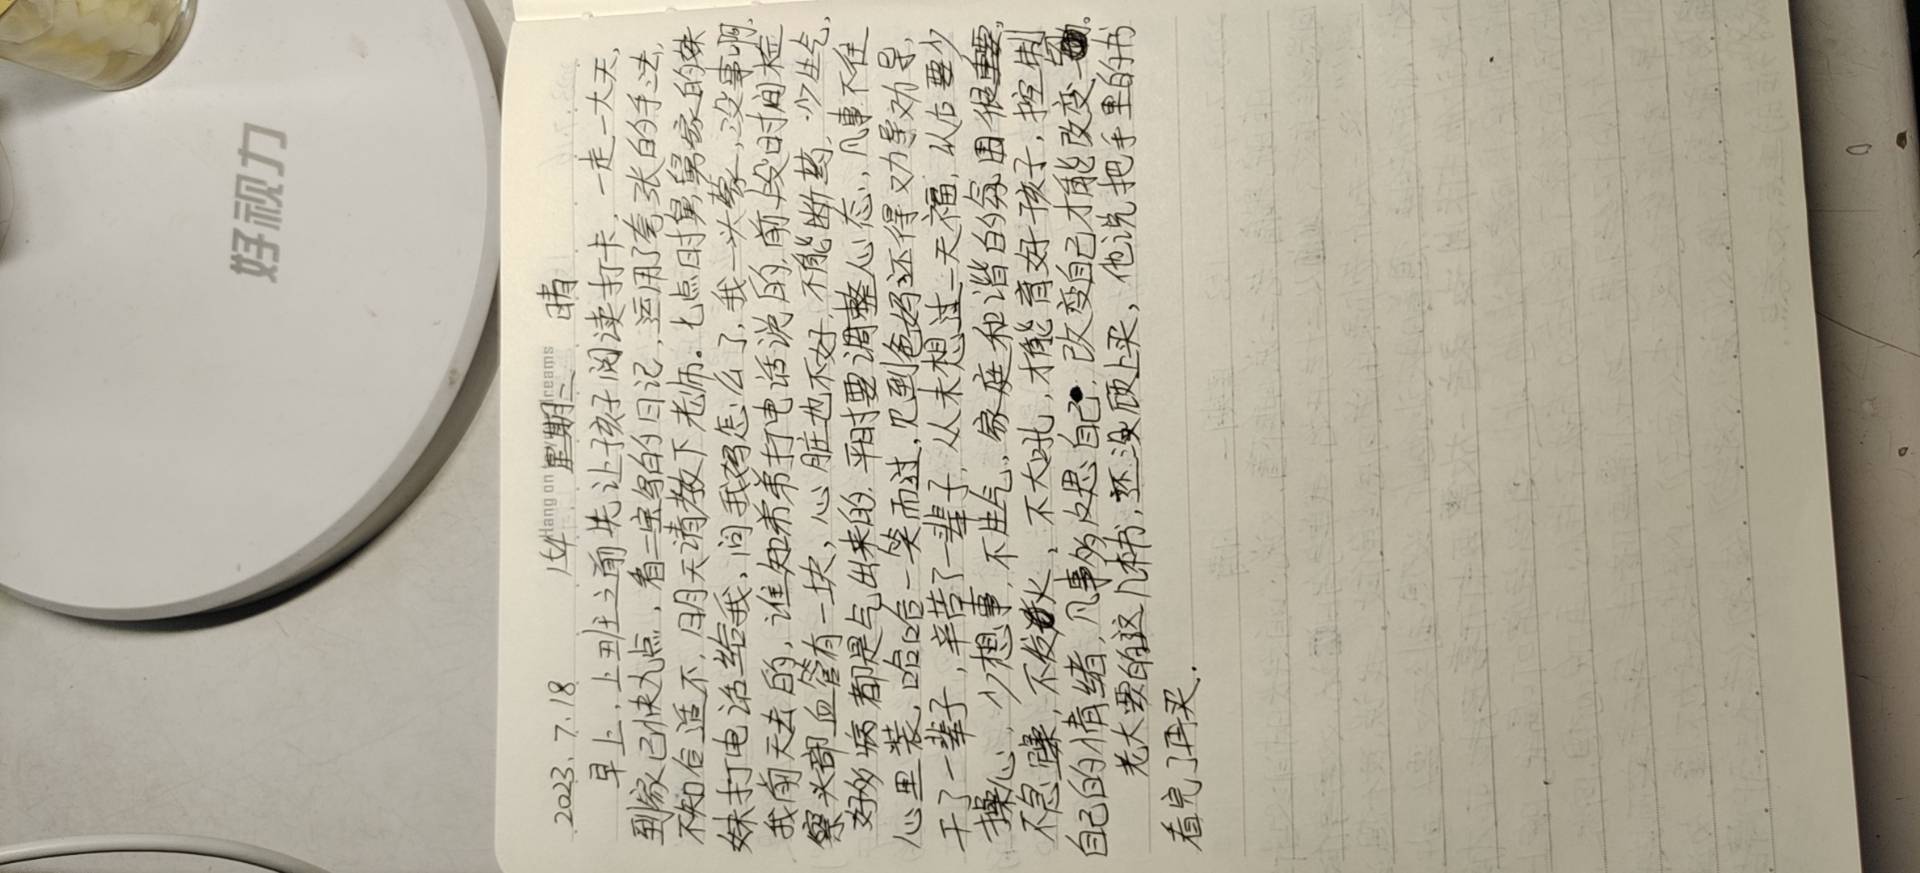 好视力
Hang on
reams
2023.7.18 154 星期二 晴
早上,上班之前先让孩子阅读打卡,一走一大天,
到家已快九点,看二宝写的日记,运用了夸张的手法,
不知合适不,明天请教下老师。七点时舅舅家的妹
妹打电话给我,问我妈怎么了,我一头蒙,没事啊,
我前天去的,谁知弟弟打电话说的,前段时间检
察头部血管有一块,心脏也不好,不能断药,少生气,
好多病都是气出来的,平时要调整心态,凡事不往
心里装,哈哈一笑而过,见到爸妈还得劝导劝导,
干了一辈子,辛苦了一辈子,从未想过一天福,从后要少
操心,少想事,不生气,家庭和谐的氛围很重要,
不急躁,不发火,不大吼,才能育好孩子,控制
自己的情绪,凡事多反思自己,改变自己才能改变
老大要的这几本书,还没顾上买,他说把手里的书
看完了再买.